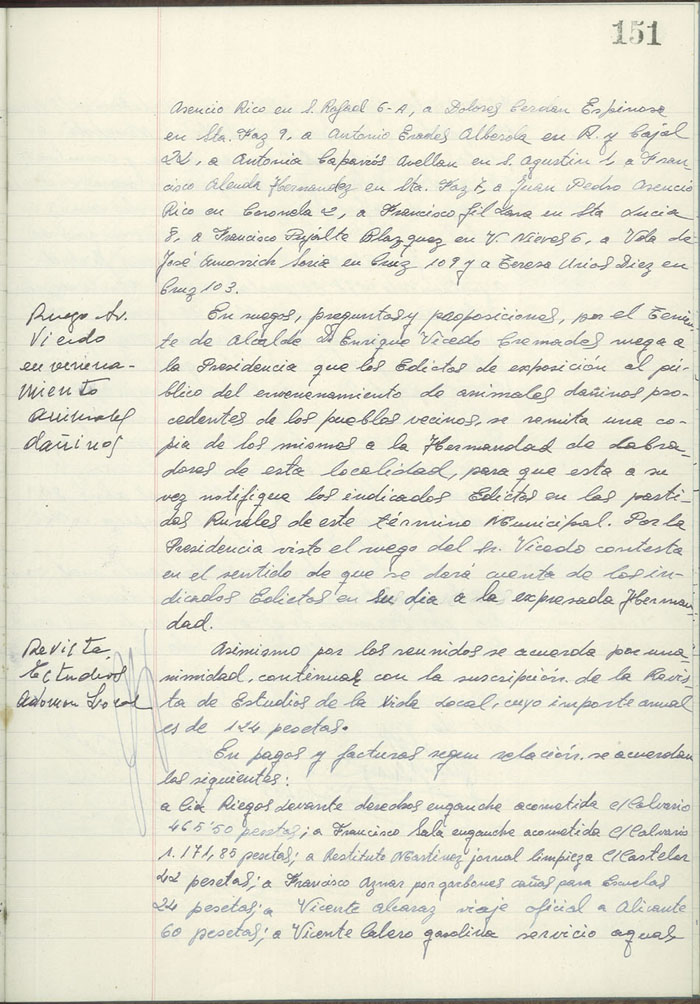 151
Asencio Rico en S. Rafael 6-A, a Dolores Cervian Espinosa
en Sta. Faz 9, a Antonio Erades Alberola en R. y Cajal
22, a Antonia Caparrós Avellan en S. Agustin 1, a Fran-
cisco Alenda Hernandez en Sta. Faz 7, a Juan Pedro Asencio
Rico en Coronela 2, a Francisco Gil Lara en Sta Lucia
8, a Francisco Pujalte Blazquez en V. Nieves 6, a Vda de
José Soria en Cruz 109 y a Teresa Urios Diez en
Cruz 103.
Ruego Sr.
Vicedo
envenena-
miento
animales
dañinos
En ruegos, preguntas y proposiciones, por el Tenien-
te de Alcalde Dn Enrique Vicedo Cremades ruega a
la Presidencia que los Edictos de exposición al pú-
blico del envenenamiento de animales dañinos pro-
cedentes de los pueblos vecinos, se remita una co-
pia de los mismos a la Hermandad de Labra-
dores de esta localidad, para que esta a su
vez notifique los indicados Edictos en las parti-
das Rurales de este término Municipal. Por la
Presidencia visto el ruego del Sr. Vicedo contesta
en el sentido de que se dará cuenta de los in-
dicados Edictos en su dia a la expresada Herman-
dad.
Revista
Estudios
Local
Asimismo por los reunidos se acuerda por una-
nimidad, continuar con la suscripción de la Revis-
ta de Estudios de la Vida Local, cuyo importe anual
es de 124 pesetas.
En pagos y facturas segun relación, se acuerdan
los siguientes:
a Cia Riegos Levante derechos enganche acometida C/Calvario
465'50 pesetas; a Francisco Sala enganche acometida C/Calvario
1.171,85 pesetas; a Restituto Martinez jornal limpieza C/Castelar
42 pesetas; a Francisco Aznar por garbones cañas para Escuelas
24 pesetas; a Vicente Alcaraz viaje oficial a Alicante
60 pesetas; a Vicente Calero gasolina servicio aguas